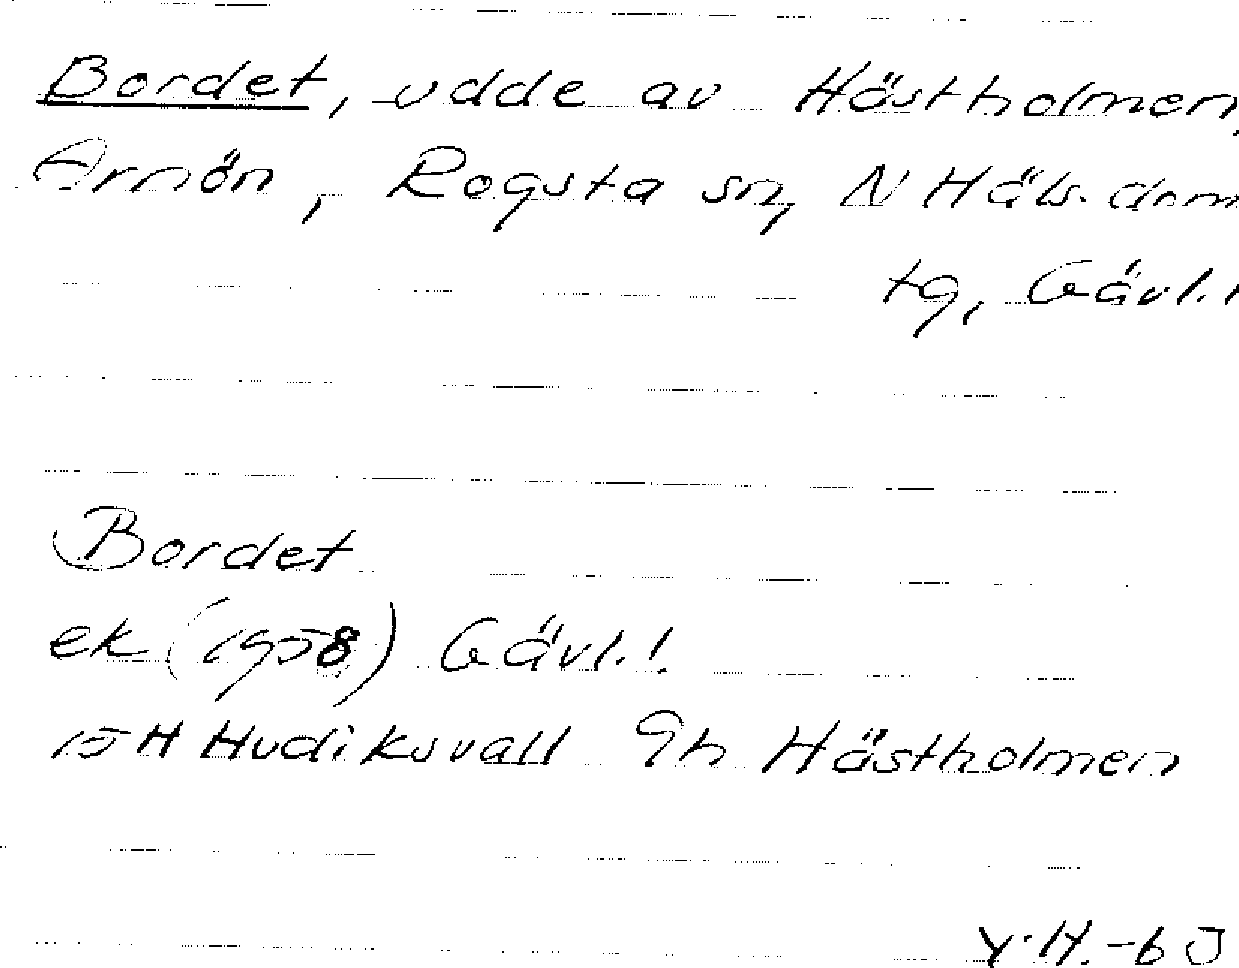 Bordet, udde av Hästholmen,
Arnön, Rogsta sn, N Häls. dom
tg, Gävl. l
Bordet
ek (1958) Gävl. l.
15H Hudiksvall 9h Hästholmen